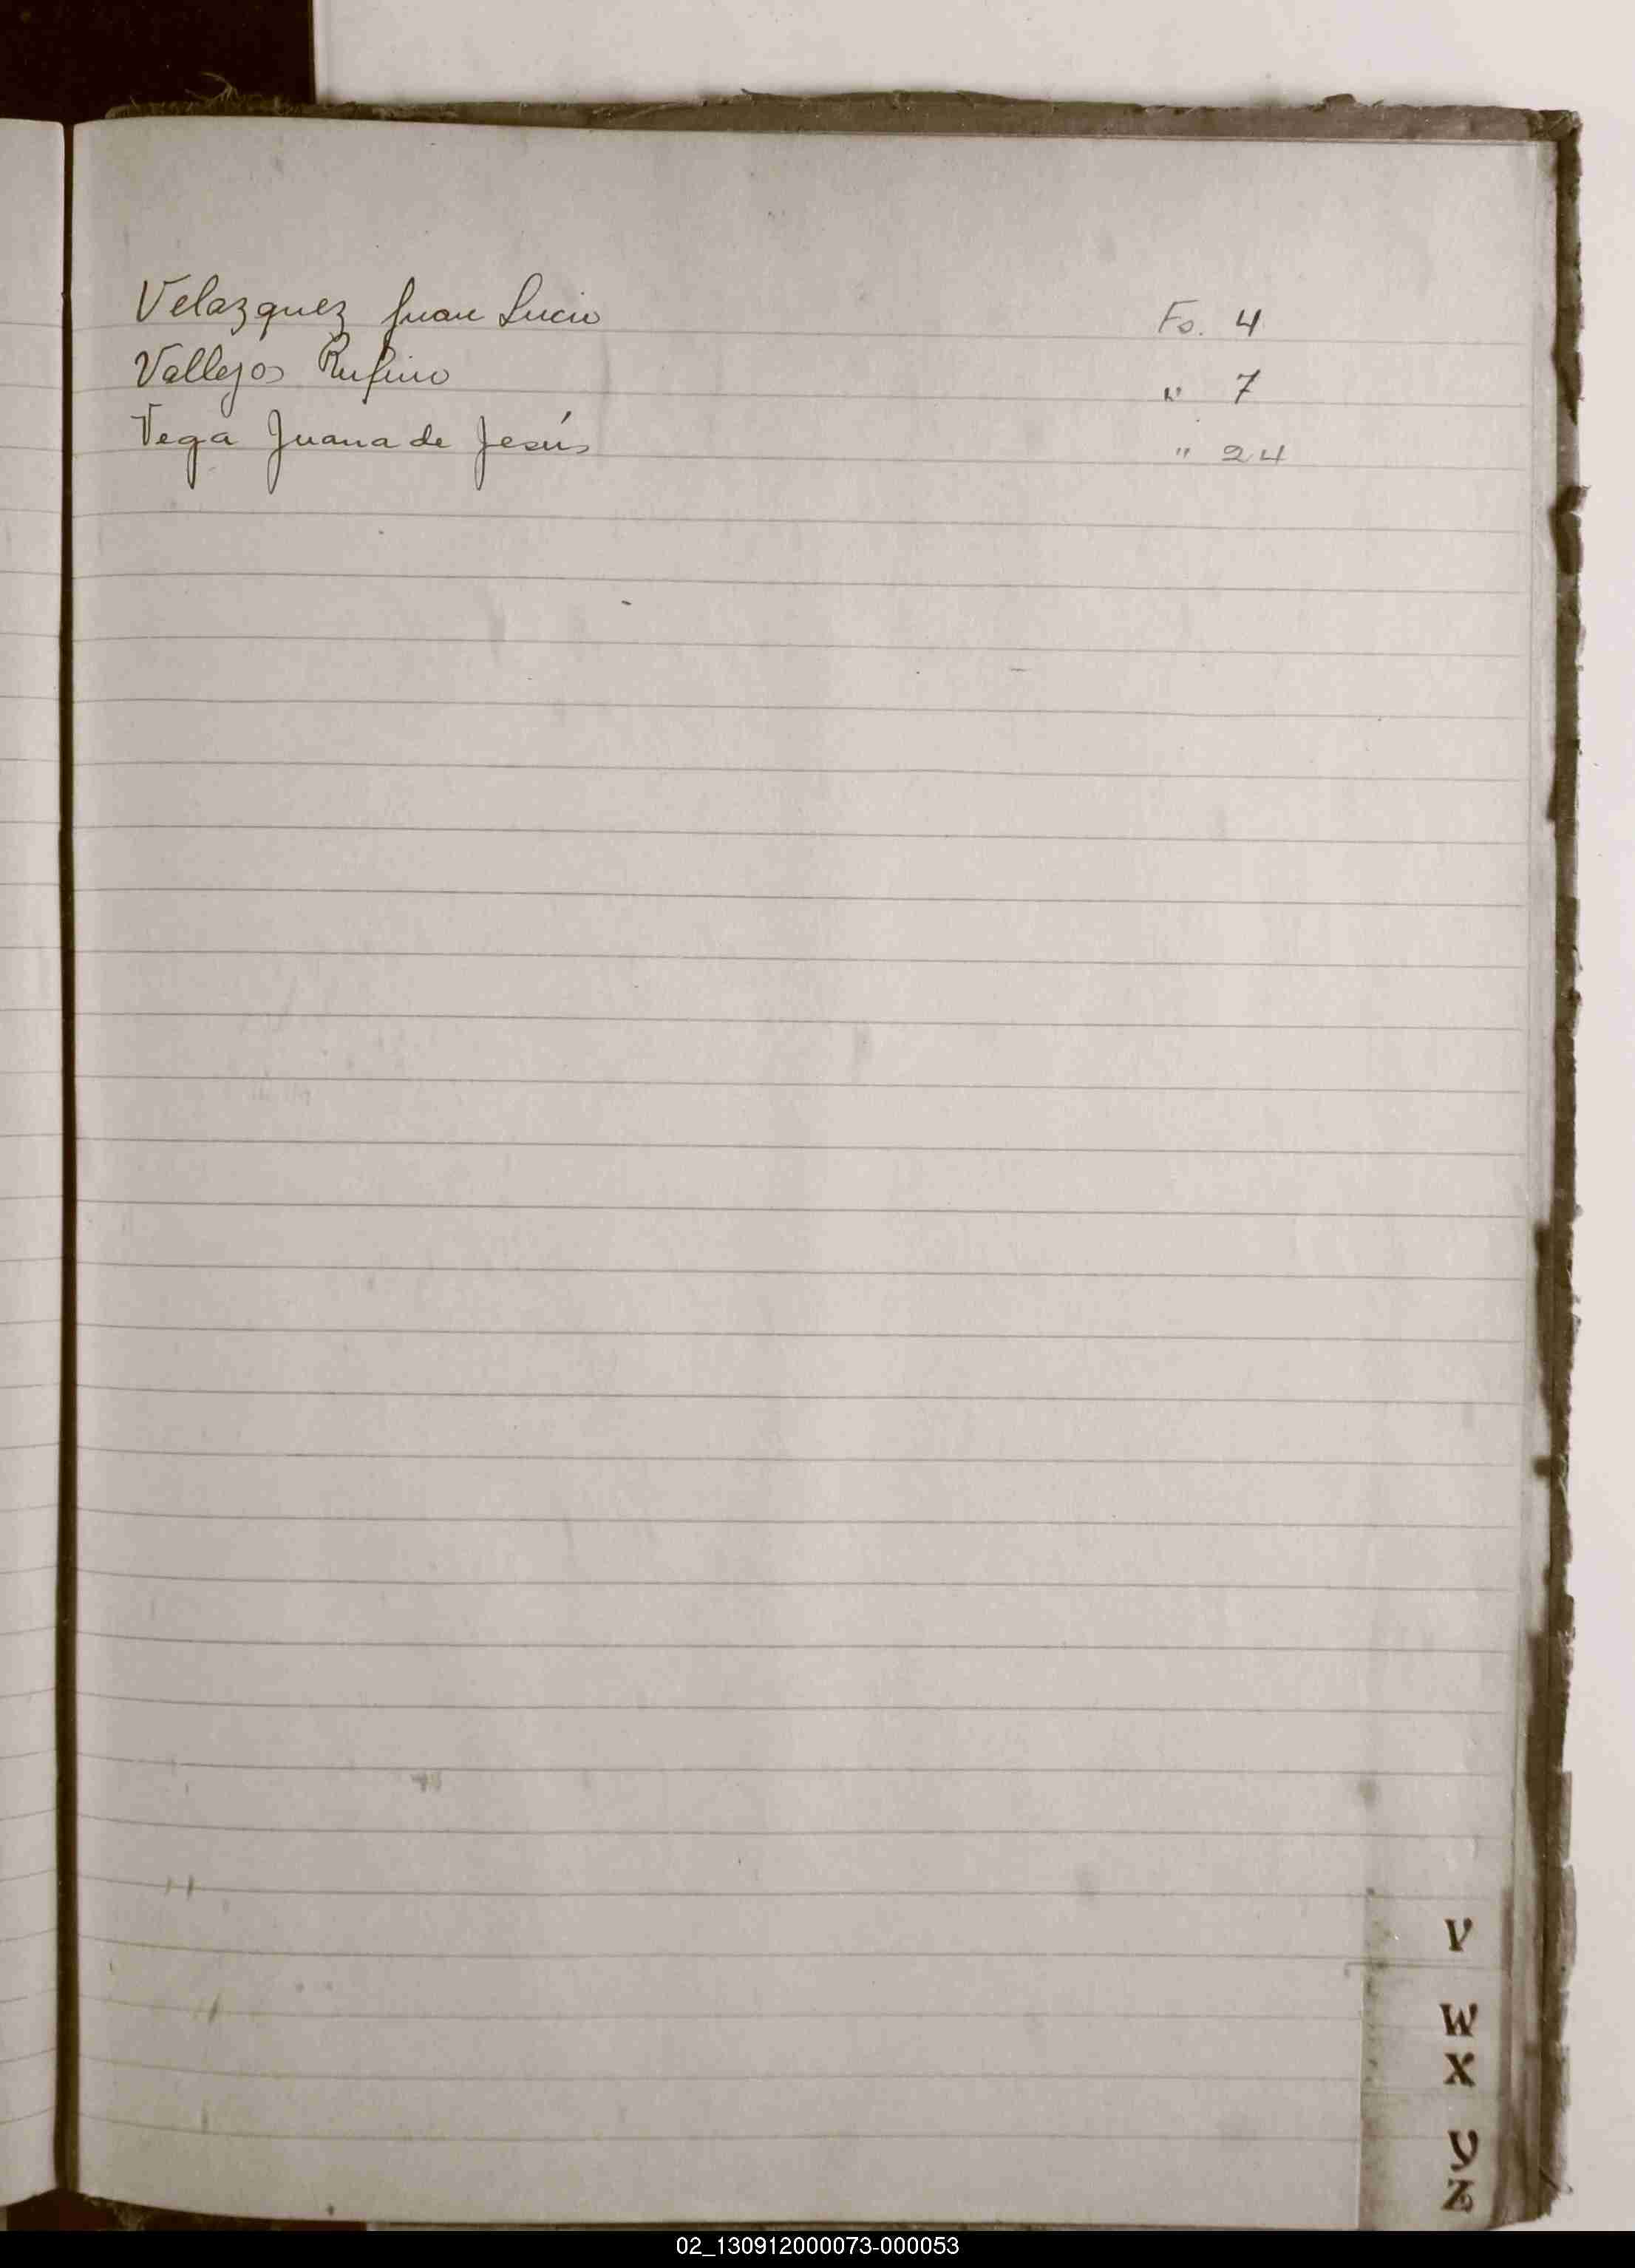 Velazquez Juan Lucio Fo. 4
Vallejos Rufino " 7
Vega Juana de Jesús " 24
V
W
X
Y
Z
02_130912000073-000053